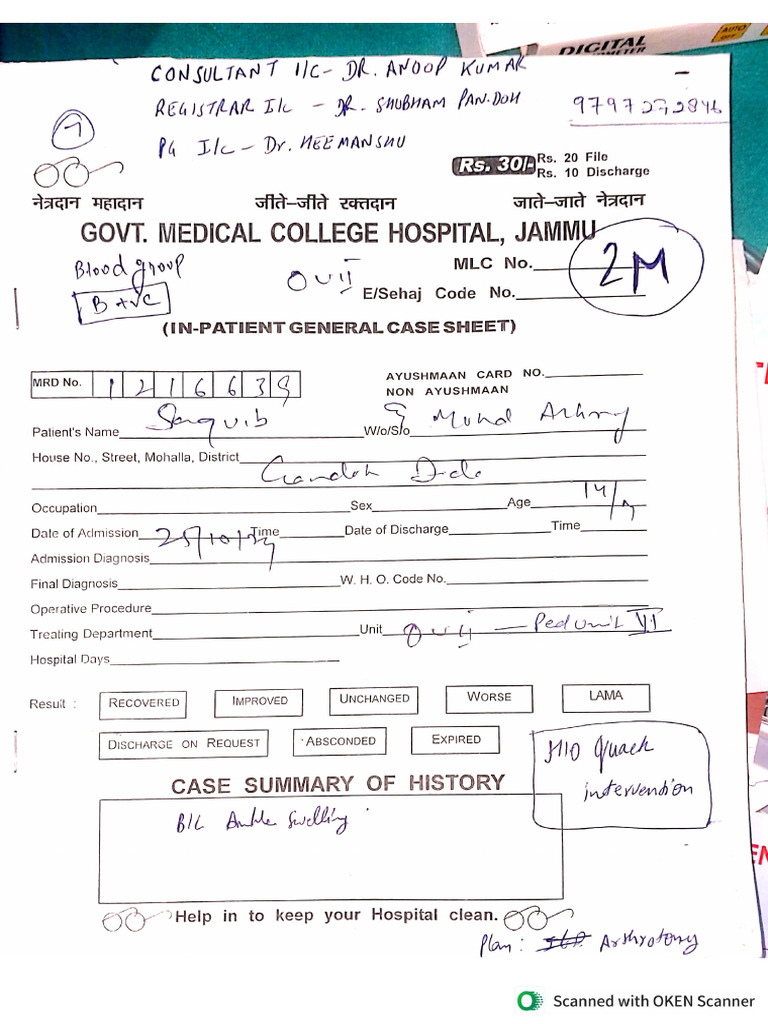 DIGITAL
AUTO
OFF
CONSULTANT I/C- DR. ANOOP KUMAR
REGISTRAR I/c - DR. SHUBHAM PANDOH
PG I/c - Dr. HEEMANSHU
Rs. 30/- Rs. 20 File
Rs. 10 Discharge
नेत्रदान महादान जीते-जीते रक्तदान जाते-जाते नेत्रदान
GOVT. MEDICAL COLLEGE HOSPITAL, JAMMU
Blood group
B +vc
O vii
MLC No.
2M
E/Sehaj Code No.
(IN-PATIENT GENERAL CASE SHEET)
MRD No. 1 2 1 6 6 3 9
AYUSHMAAN CARD NO.
NON AYUSHMAAN
Patient's Name Saquib W/o/S/o Mohd
House No., Street, Mohalla, District
Occupation Sex Age 14/y
Date of Admission 25/10/ Time Date of Discharge Time
Admission Diagnosis
Final Diagnosis W. H. O. Code No.
Operative Procedure
Treating Department Unit O vii - Ped unit VII
Hospital Days
Result : RECOVERED IMPROVED UNCHANGED WORSE LAMA
DISCHARGE ON REQUEST ABSCONDED EXPIRED
H/O Quack
intervention
CASE SUMMARY OF HISTORY
B/L Ankle swelling
Help in to keep your Hospital clean.
Plan: Arthrotomy
Scanned with OKEN Scanner